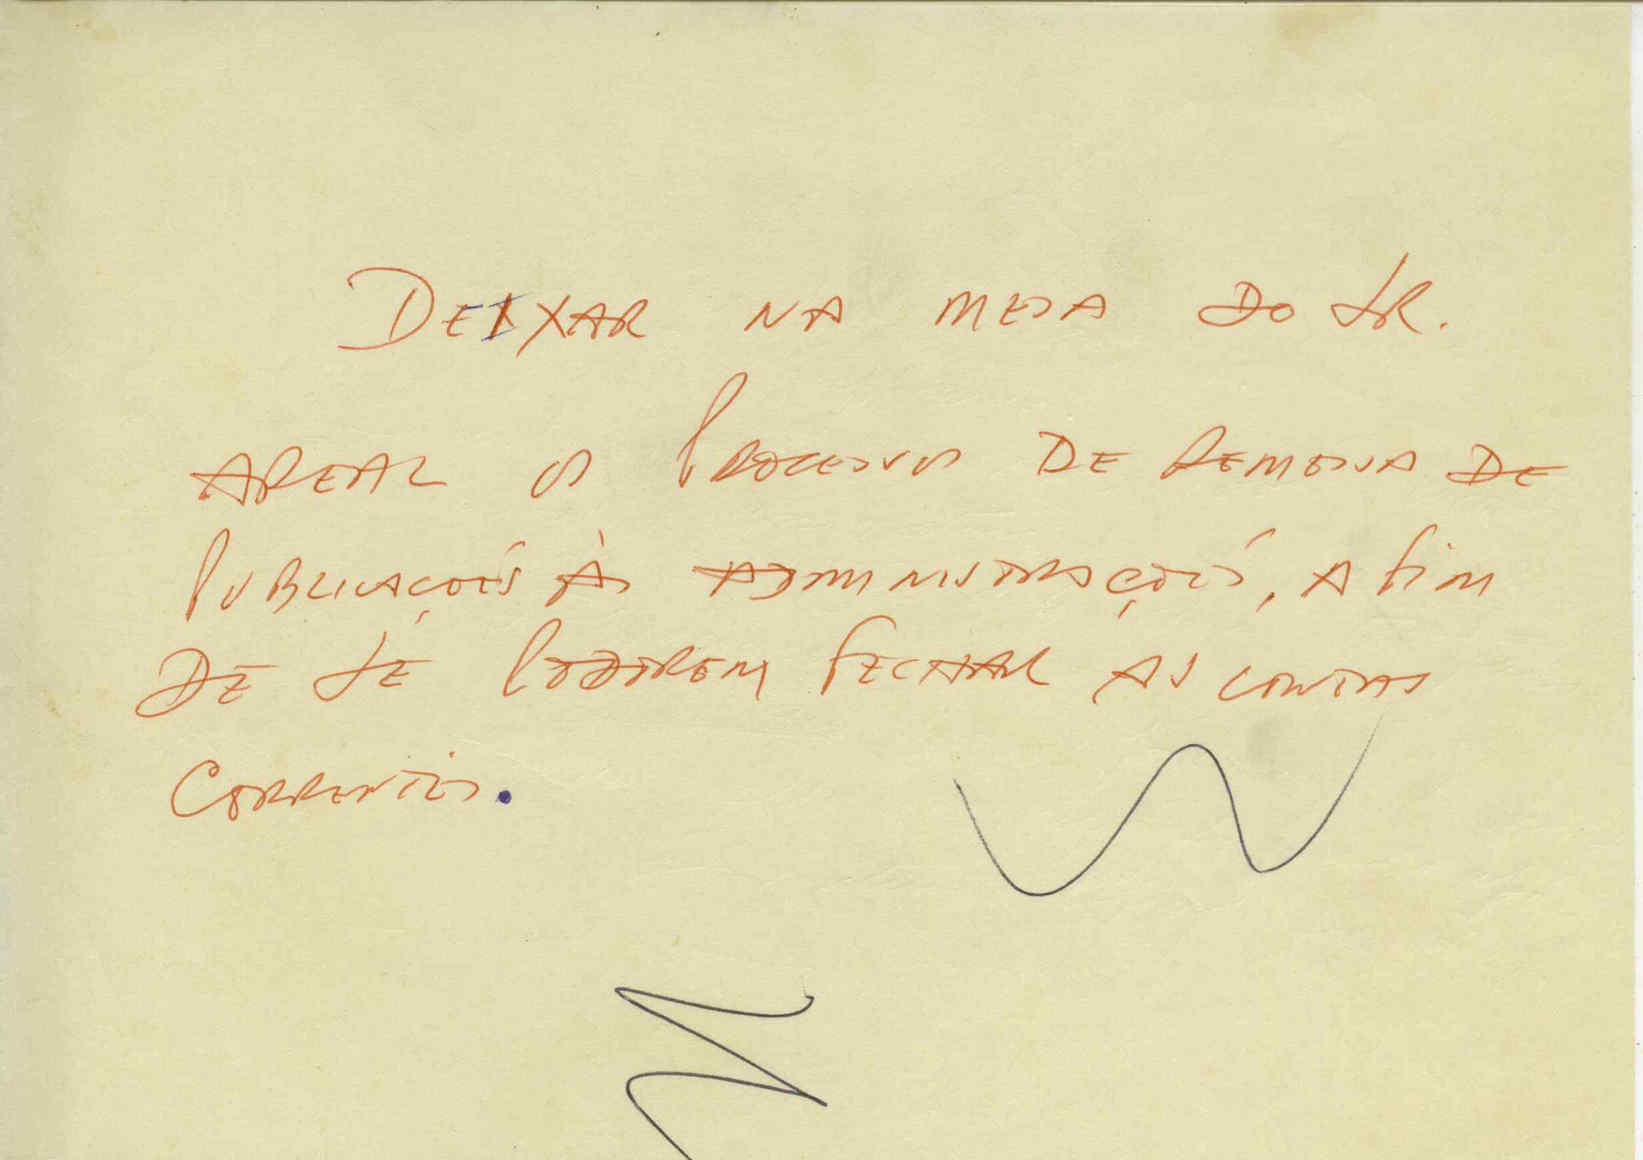 DEIXAR NA MESA DO SR.
AREAL OS PROCESSOS DE REMESSA DE
PUBLICAÇÕES ÀS ADMINISTRAÇÕES, A FIM
DE SE PODEREM FECHAR AS CONTAS
CORRENTES.